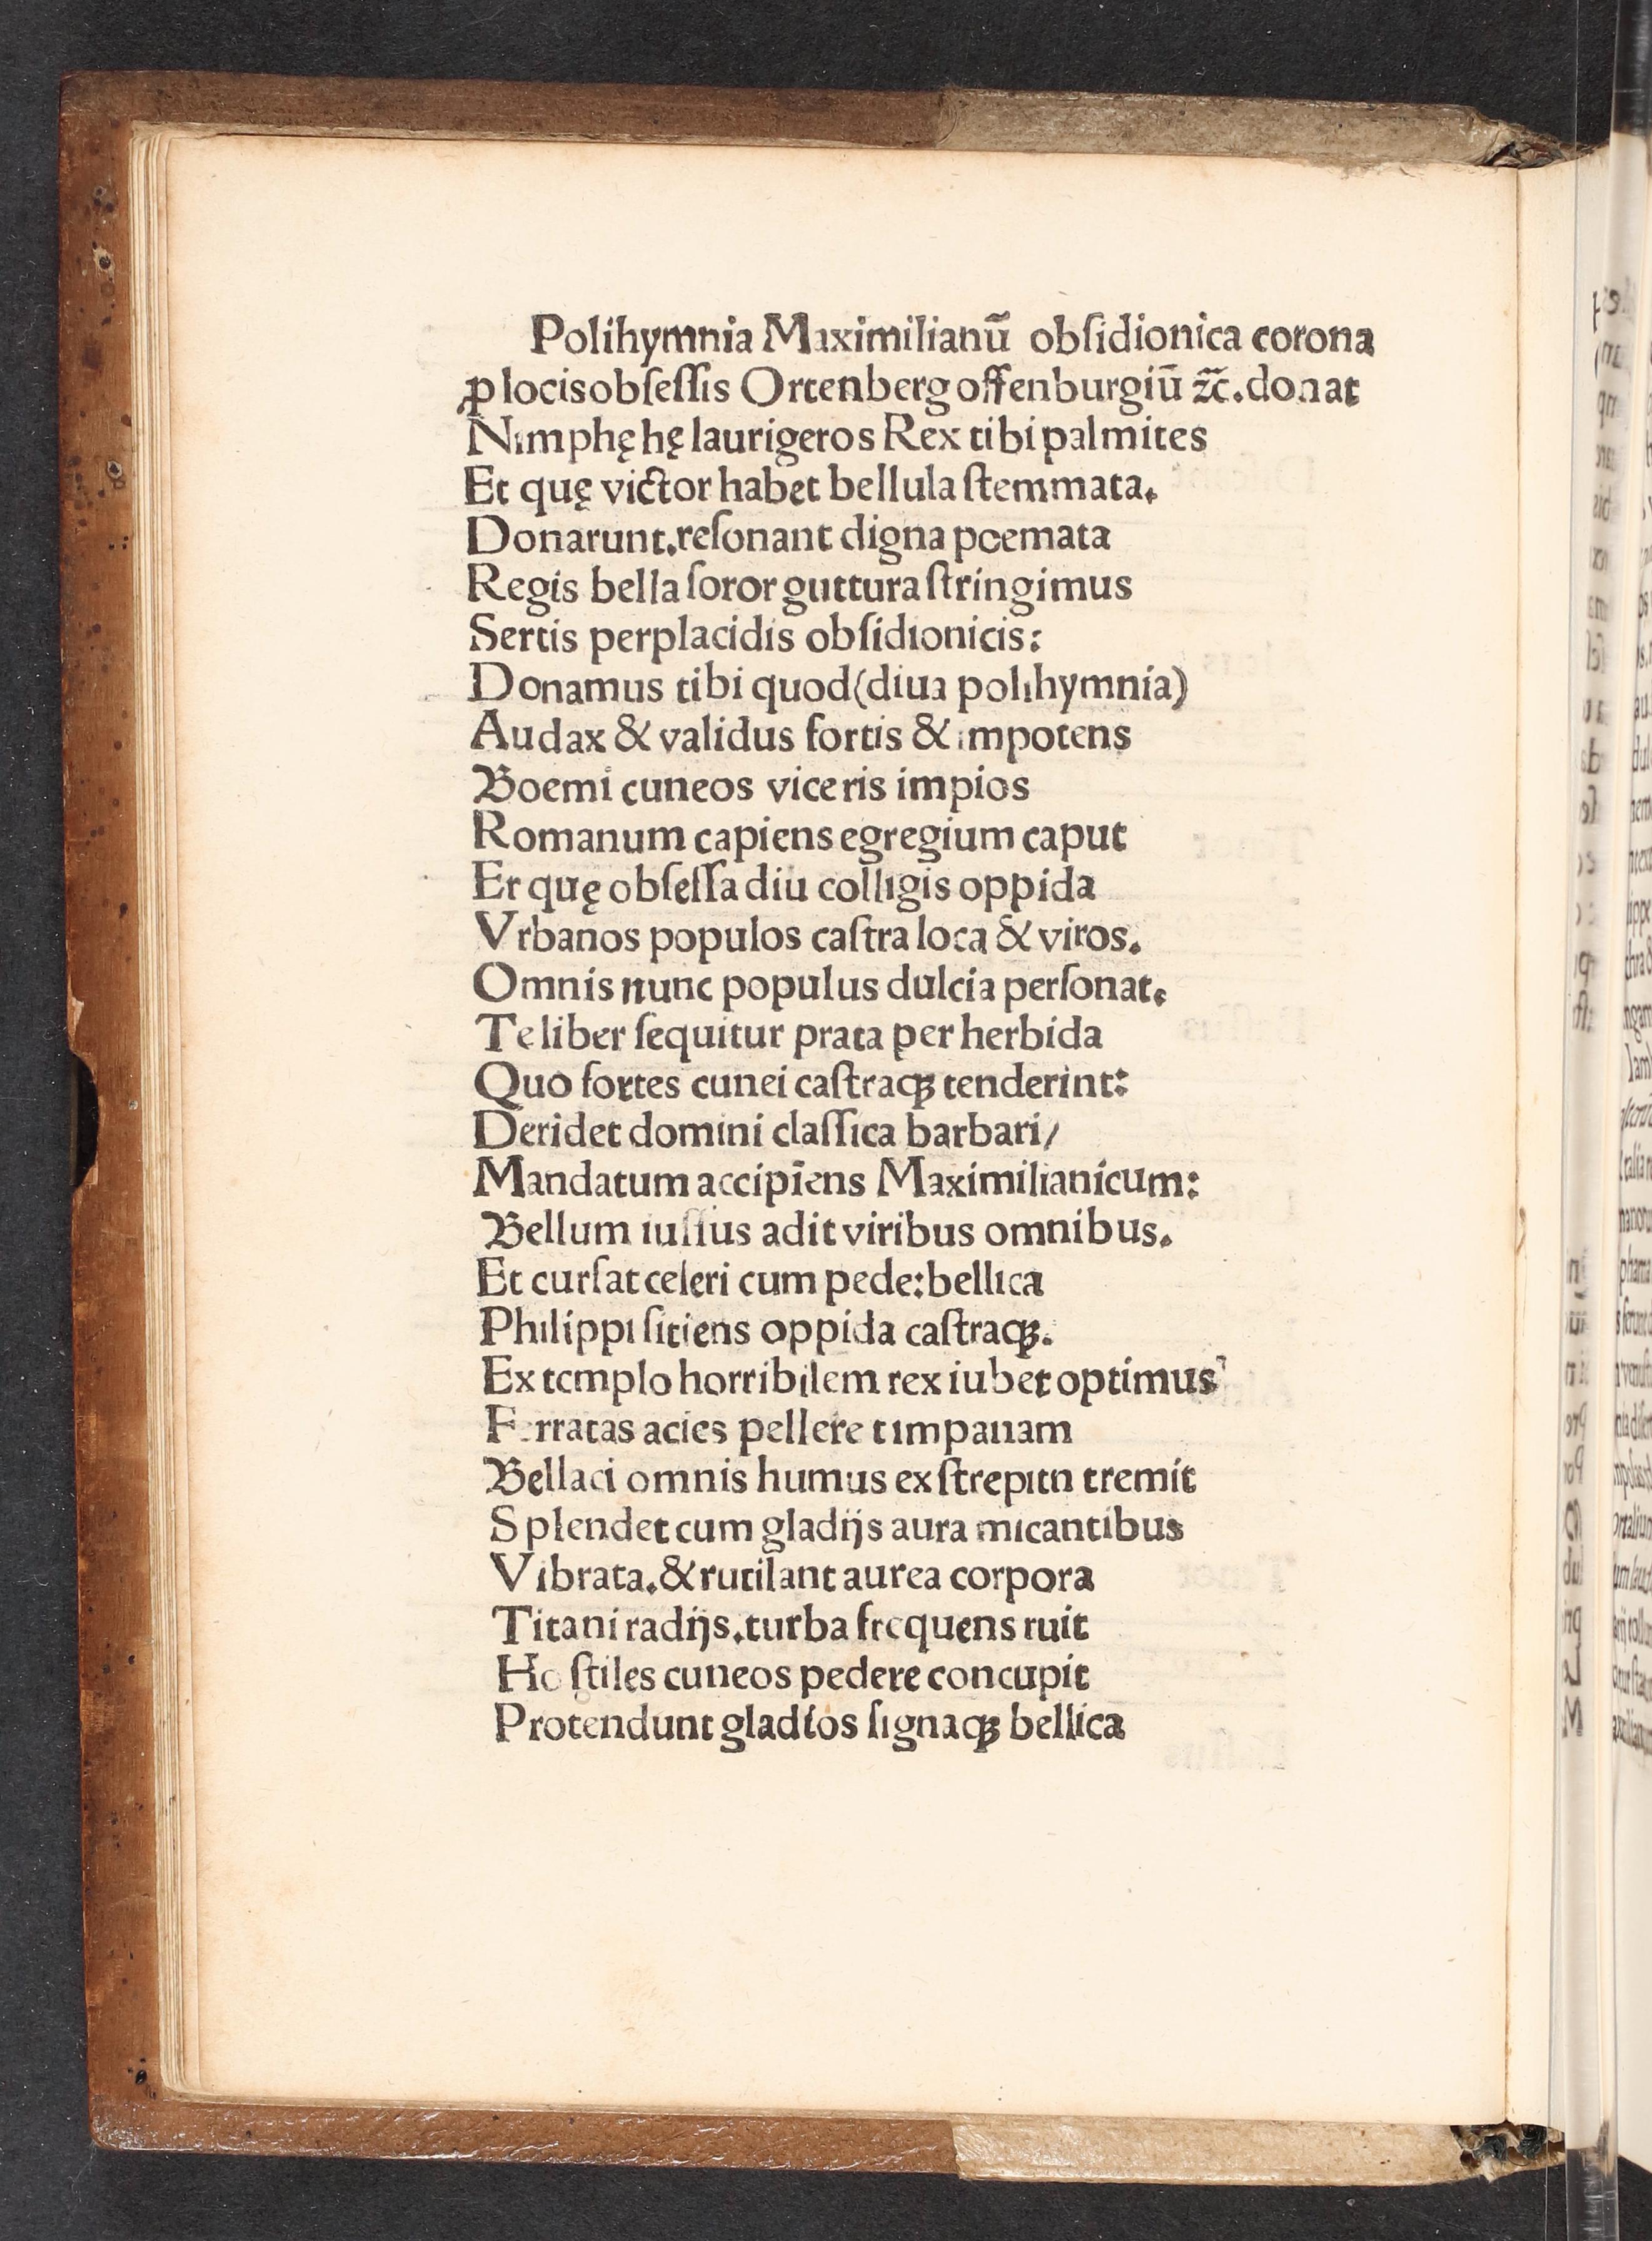 Polihymnia Maximilianū obſidionica corona
ꝓ locisobſeſſis Ortenberg offenburgiū ⁊c̃. donat
Nimphę hę laurigeros Rex tibi palmites
Et quę victor habet bellula ſtemmata.
Donarunt. reſonant digna poemata
Regis bella ſoror guttura ſtringimus
Sertis perplacidis obſidionicis:
Donamus tibi quod (diua polihymnia)
Audax & validus fortis & impotens
Boemi cuneos viceris impios
Romanum capiens egregium caput
Er quę obſeſſa diu colligis oppida
Vrbanos populos caſtra loca & viros.
Omnis nunc populus dulcia perſonat.
Te liber ſequitur prata per herbida
Quo fortes cunei caſtraqꝫ tenderint:
Deridet domini claſſica barbari/
Mandatum accipiens Maximilianicum:
Bellum iuſſus adit viribus omnibus.
Et curſat celeri cum pede: bellica
Philippi ſitiens oppida caſtraqꝫ.
Ex templo horribilem rex iubet optimus
Ferratas acies pellere timpanam
Bellaci omnis humus ex ſtrepitn tremit
Splendet cum gladijs aura micantibus
Vibrata. & rutilant aurea corpora
Titani radijs. turba frequens ruit
Hoſtiles cuneos pedere concupit
Protendunt gladios ſignaqꝫ bellica